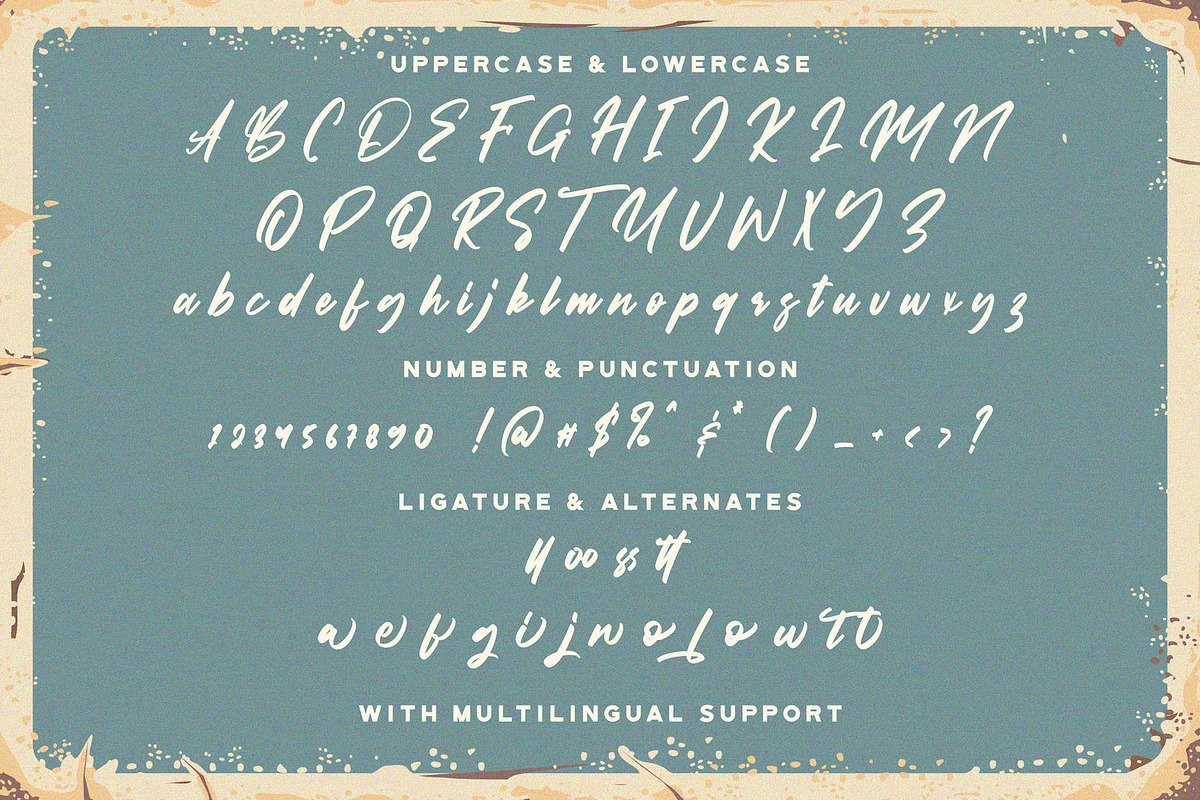 UPPERCASE & LOWERCASE
ABCDEFGHIJKLMN
OPQRSTUVWXYZ
abcdefghijklmnopqrstuvwxyz
NUMBER & PUNCTUATION
1234567890 !@#$%^ &* () _ + < > ?
LIGATURE & ALTERNATES
ll oo ss tt
WITH MULTILINGUAL SUPPORT